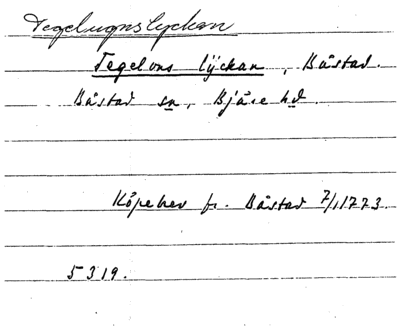 Tegelugnslyckan
Tegelons lÿckan, Båstad.
Båstad sn, Bjäre hd.
Köpebrev fr. Båstad 7/1 1773.
5319.